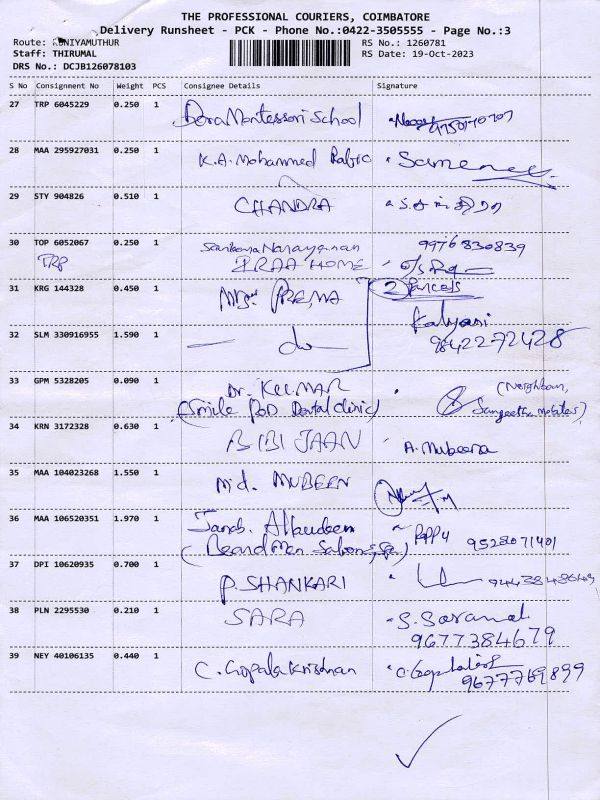 THE PROFESSIONAL COURIERS, COIMBATORE
Delivery Runsheet - PCK - Phone No.:0422-3505555 - Page No.:3
Route: KUNIYAMUTHUR RS No.: 1260781
Staff: THIRUMAL RS Date: 19-Oct-2023
DRS No.: DCJB126078103
S No Consignment No Weight PCS Consignee Details Signature
27 TRP 6045229 0.250 1 Dora Montessori School
28 MAA 295927031 0.250 1 K.A. Mohammed Rafic
29 STY 904826 0.510 1 CHANDRA
30 TOP 6052067 0.250 1 Sankara Narayanan 9976830839
TRP IRAA HOME
31 KRG 144328 0.450 1 Mrs. PREMA 2 Parcels
Kalyani
32 SLM 330916955 1.590 1 — do — 98422-72428
33 GPM 5328205 0.090 1 Dr. KUMAR (Neighbour,
(Smile POD Dental clinic) Sangeetha mobiles)
34 KRN 3172328 0.630 1 BIBI JAAN A. Mubeena
35 MAA 104023268 1.550 1 Md. MUBEEN
36 MAA 106520351 1.970 1 Janab. Allaudeen Pappu 9528071401
(Beard Men Saloon &
37 DPI 10620935 0.700 1 P. SHANKARI
38 PLN 2295530 0.210 1 SARA S. Saranal
9677384679
39 NEY 40106135 0.440 1 C. Gopalakrishnan
9677769899